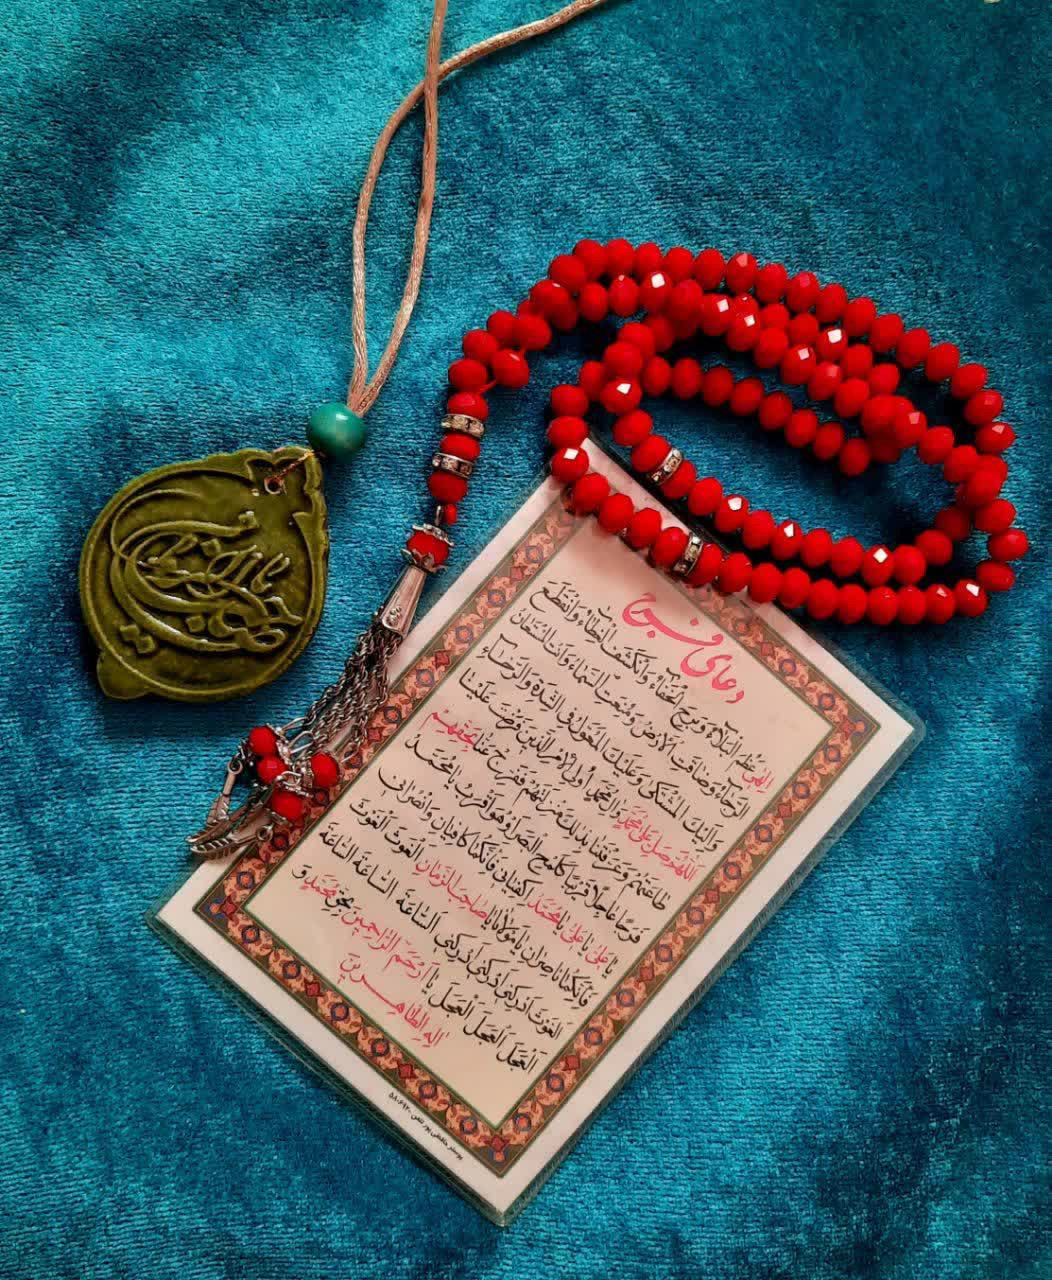 دعای فرج
اِلٰهی عَظُمَ الْبَلاءُ وَبَرِحَ الْخَفاءُ وَانْكَشَفَ الْغِطاءُ وَانْقَطَعَ
الرَّجاءُ وَضاقَتِ الْاَرْضُ وَمُنِعَتِ السَّماءُ وَاَنْتَ الْمُسْتَعانُ
وَاِلَیْكَ الْمُشْتَكی وَعَلَیْكَ الْمُعَوَّلُ فِی الشِّدَّةِ وَالرَّخاءِ
اَللّٰهُمَّ صَلِّ عَلی مُحَمَّدٍ وَالِ مُحَمَّدٍ اُولِی الْاَمْرِ الَّذینَ فَرَضْتَ عَلَیْنا
طاعَتَهُمْ وَعَرَّفْتَنا بِذلِكَ مَنْزِلَتَهُمْ فَفَرِّجْ عَنّا بِحَقِّهِمْ
فَرَجاً عاجِلاً قَریباً كَلَمْحِ الْبَصَرِ اَوْ هُوَ اَقْرَبُ یا مُحَمَّدُ
یا عَلِیُّ یا عَلِیُّ یا مُحَمَّدُ اِكْفِیانی فَاِنَّكُما كافِیانِ وَانْصُرانی
فَاِنَّكُما ناصِرانِ یا مَوْلانا یا صاحِبَ الزَّمانِ الْغَوْثَ الْغَوْثَ
الْغَوْثَ اَدْرِكْنی اَدْرِكْنی اَدْرِكْنی السّاعَةَ السّاعَةَ السّاعَةَ
الْعَجَلَ الْعَجَلَ الْعَجَلَ یا اَرْحَمَ الرّاحِمینَ بِحَقِّ مُحَمَّدٍ وَ
الِهِ الطّاهِرینَ
پوستر حافظی پور تلفن